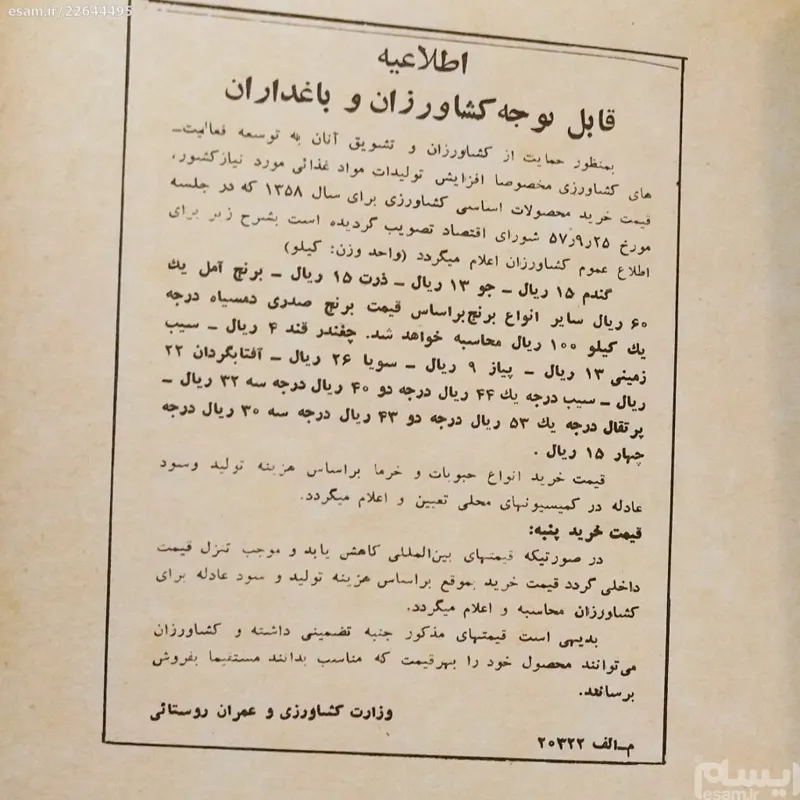 esam.ir/22644495
اطلاعیه
قابل توجه کشاورزان و باغداران
بمنظور حمایت از کشاورزان و تشویق آنان به توسعه فعالیت–
های کشاورزی مخصوصا افزایش تولیدات مواد غذائی مورد نیازکشور،
قیمت خرید محصولات اساسی کشاورزی برای سال ۱۳۵۸ که در جلسه
مورخ ۲۵ر۹ر۵۷ شورای اقتصاد تصویب گردیده است بشرح زیر برای
اطلاع عموم کشاورزان اعلام میگردد (واحد وزن: کیلو)
گندم ۱۵ ریال – جو ۱۳ ریال – ذرت ۱۵ ریال – برنج آمل یك
۶۰ ریال سایر انواع برنج براساس قیمت برنج صدری دمسیاه درجه
یك کیلو ۱۰۰ ریال محاسبه خواهد شد. چغندر قند ۴ ریال – سیب
زمینی ۱۳ ریال – پیاز ۹ ریال – سویا ۲۶ ریال – آفتابگردان ۲۲
ریال – سیب درجه یك ۴۴ ریال درجه دو ۴۰ ریال درجه سه ۳۲ ریال –
پرتقال درجه یك ۵۳ ریال درجه دو ۴۳ ریال درجه سه ۳۰ ریال درجه
چهار ۱۵ ریال .
قیمت خرید انواع حبوبات و خرما براساس هزینه تولید وسود
عادله در کمیسیونهای محلی تعیین و اعلام میگردد.
قیمت خرید پنبه:
در صورتیکه قیمتهای بین‌المللی کاهش یابد و موجب تنزل قیمت
داخلی گردد قیمت خرید بموقع براساس هزینه تولید و سود عادله برای
کشاورزان محاسبه و اعلام میگردد.
بدیهی است قیمتهای مذکور جنبه تضمینی داشته و کشاورزان
می‌توانند محصول خود را بهرقیمت که مناسب بدانند مستقیما بفروش
برسانند.
وزارت کشاورزی و عمران روستائی
م–الف ۲۰۳۲۲
ایسام
esam.ir